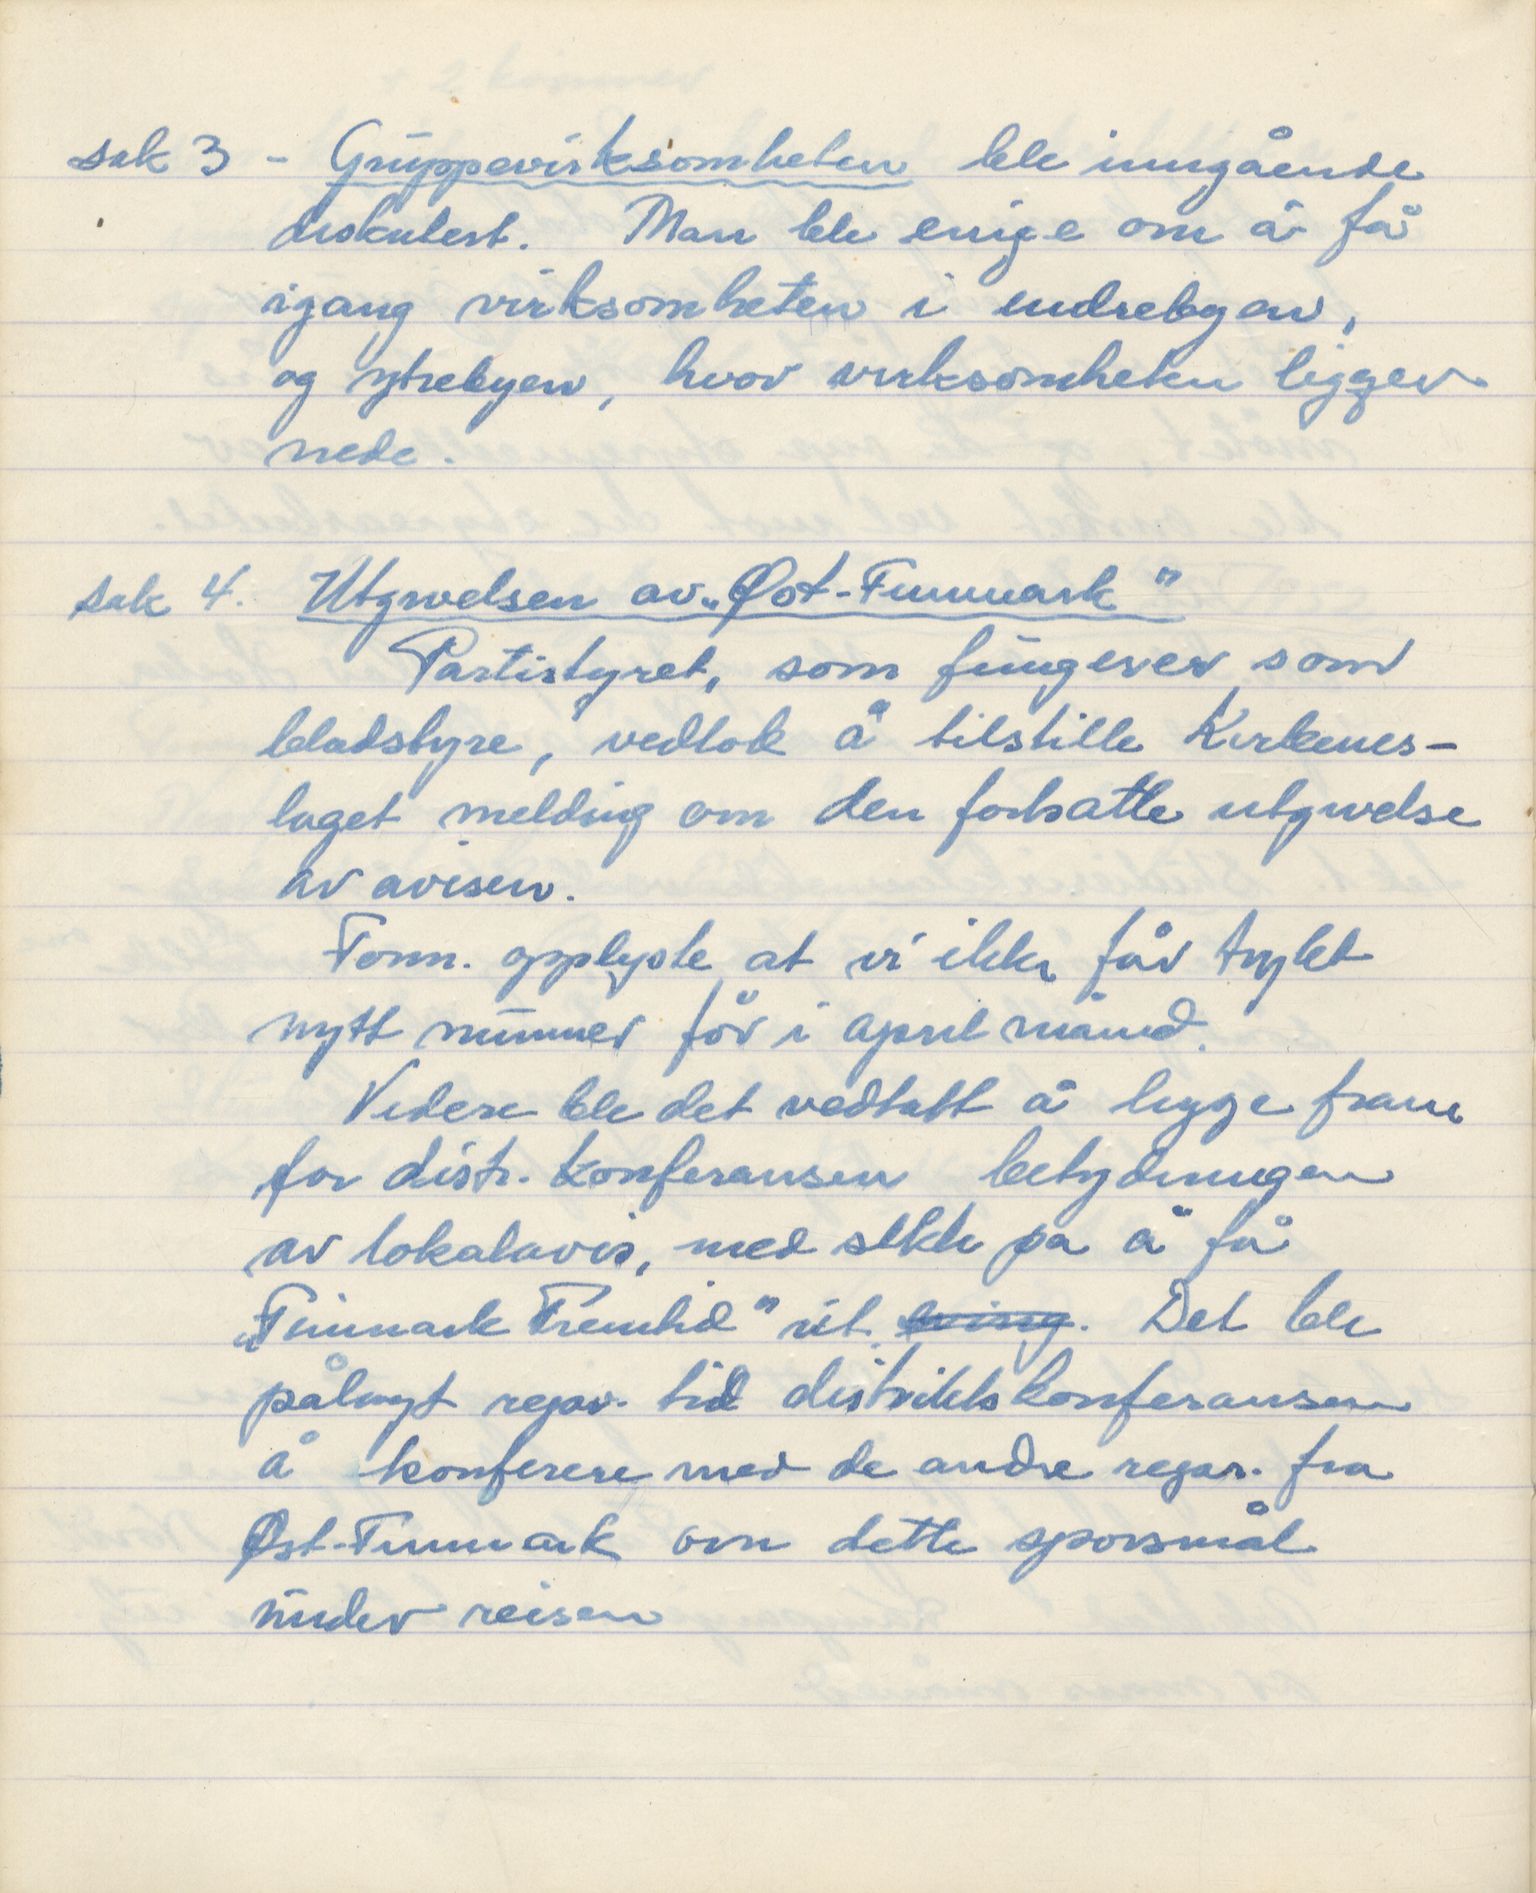 sak 3 - Gruppevirksomheten ble inngående
diskutert. Man ble enige om å få
igang virksomheten i indrebyen,
og ytrebyen, hvor virksomheten ligger
nede.
sak 4. Utgivelsen av „Øst-Finnmark"
Partistyret, som fungerer som
bladstyre, vedtok å tilstille Kirkenes-
laget melding om den fortsatte utgivelse
av avisen.
Form. opplyste at vi ikke får trykt
nytt nummer för i april månd.
Videre ble det vedtatt å legge fram
for distr. konferansen betydningen
av lokalavis, med sikte på å få
„Finnmark Fremtid" ut. Det ble
pålagt repr. til distriktskonferansen
å konferere med de andre repr. fra
Øst-Finnmark om dette sporsmål
under reisen